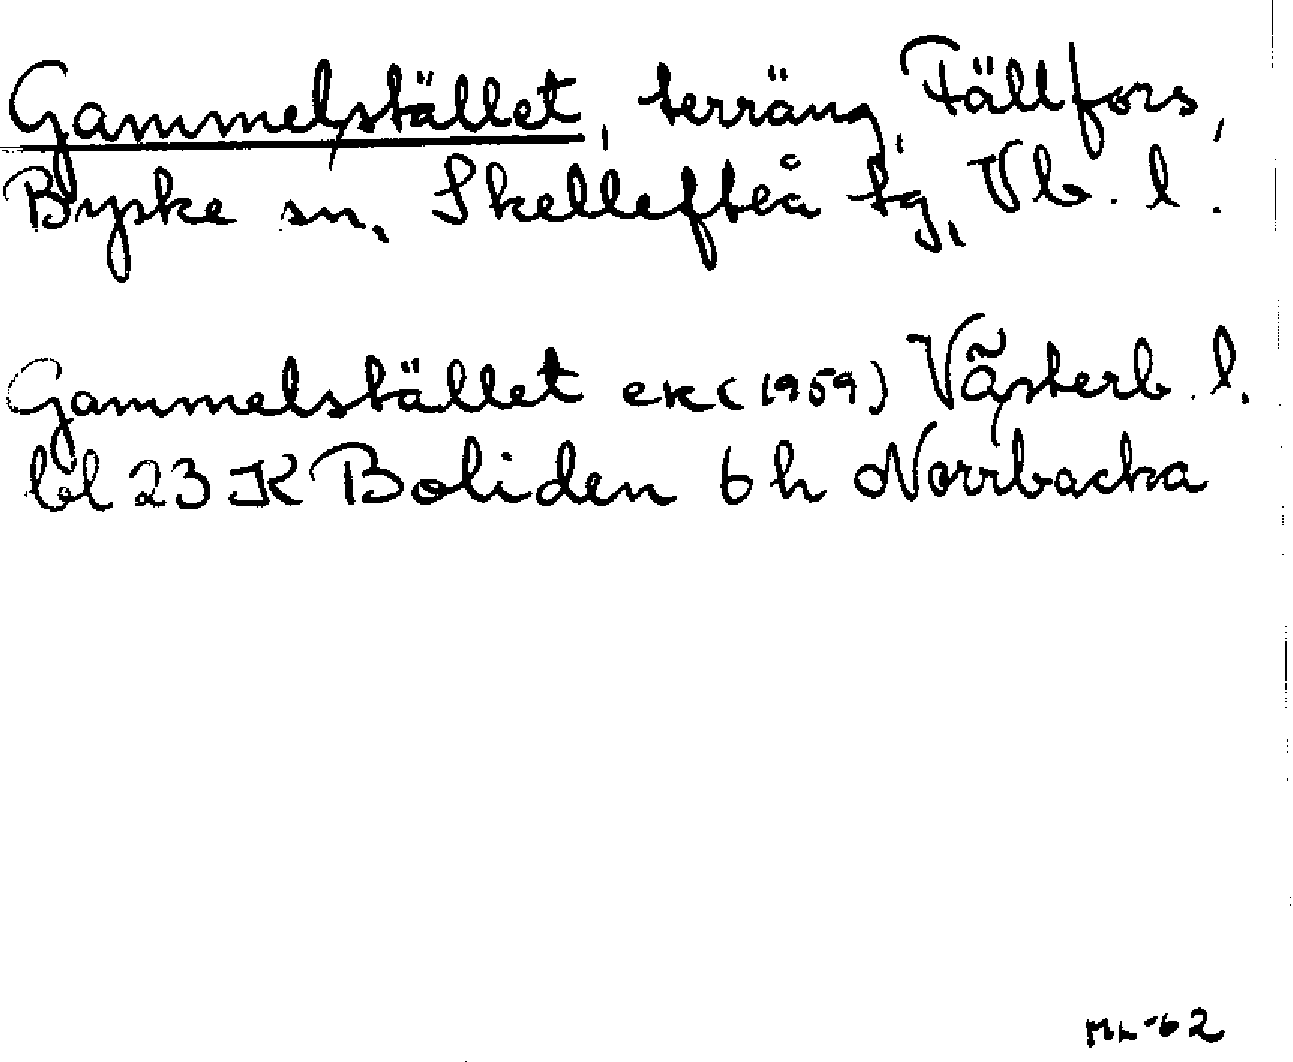 Gammelstället, terräng, Fällfors,
Byske sn, Skellefteå tg, Vb. l.
Gammelstället ek (1959) Västerb. l.
bl 23 K Boliden 6 h Norrbacka
ML-62